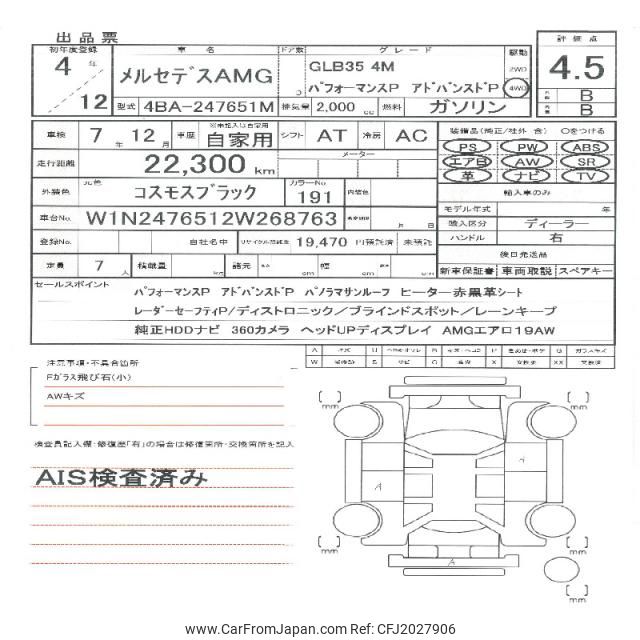 出品票
初年度登録 車名 ドア数 グレード 駆動 評価点
4年 メルセデスAMG D GLB35 4M 2WD 4.5
12 パフォーマンスP アドバンスドP 4WD
型式 4BA-247651M 排気量 2,000 cc 燃料 ガソリン B
B
車検 7年 12月 車歴 ※未記入は自家用 自家用 シフト AT 冷房 AC 装備品(純正/社外 含) Oをつける
走行距離 22,300 km メーター PS PW ABS
エアB AW SR
革 ナビ TV
外装色 元色 コスモスブラック カラーNo 191 内装色 輸入車のみ
車台No. W1N2476512W268763 月 日 モデル年式 年
輸入区分 ディーラー
登録No. 自社名中 リサイクル預託金 19,470 円預託済 未預託 ハンドル 右
定員 7人 積載量 km 諸元 長さ cm 幅 cm 高さ cm 後日発送品
新車保証書 車両取説 スペアキー
セールスポイント
パフォーマンスP アドバンスドP パノラマサンルーフ ヒーター赤黒革シート
レーダーセーフティP/ディストロニック/ブラインドスポット/レーンキープ
純正HDDナビ 360カメラ ヘッドUPディスプレイ AMGエアロ19AW
注意事項・不具合箇所
Fガラス飛び石(小)
AWキズ
検査員記入欄:修復歴「有」の場合は修復箇所・交換箇所を記入
AIS検査済み
A
A
A
mm
mm
mm
mm
mm
www.CarFromJapan.com Ref: CFJ2027906